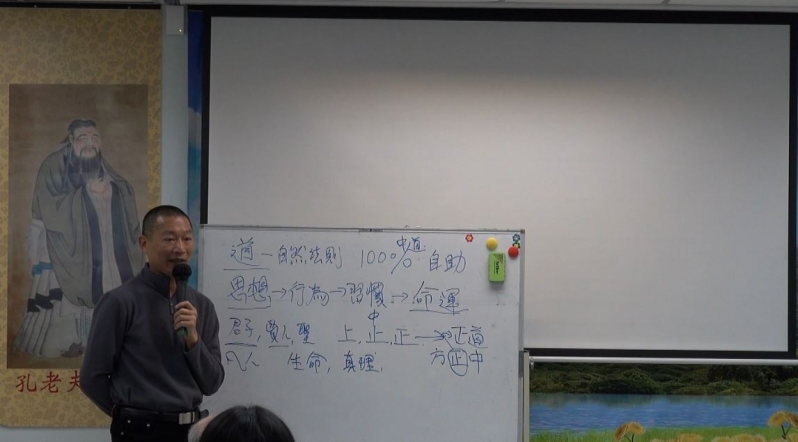 孔老夫
中道
道－自然法則 100% 自助
思想→行為→習慣→命運
中
君子,賢人,聖 上,止,正→正道
凡人 生命,真理, 方正中